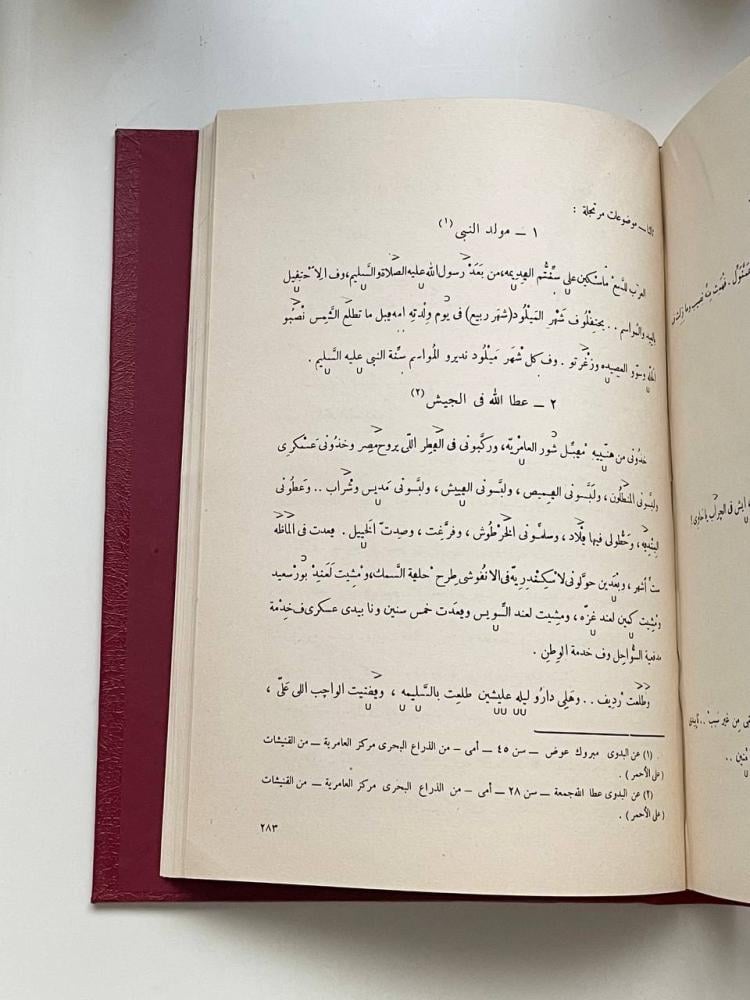 ثالثا ــ موضوعات مرتجلة :
١ ــ مولد النبى (١)
العرب للدمع ماسكين على سفتم الهديمه، من بعد رسول الله عليه الصلاة والسليم، وف الاحتفيل
بالعيه والمواسم . . يحتفلوف شهر الميلود (شهر ربيع) فى يوم ولدته امه قبل ما تطلع الشمس نصبو
الحله وسوو العصيده وزغرتو . وف كل شهر ميلود نديرو المواسم سنة النبى عليه السليم .
٢ ــ عطا الله فى الجيش (٢)
خدونى من هنييه مقبل شور العامريه، وركبونى فى القطر اللى يروح مصر وخدونى عسكرى
ولبسونى المنطلون، ولبسونى القميص، ولبسونى الهييش، ولبسونى مديس وشراب . . وعطونى
البندقيه، وحطولى فيها فلاد، وسلمونى الخرطوش، وفرغت، وصدت الخييل . قعدت فى الماظه
ست اشهر، وبعدين حولونى لاسكندريه فى الانفوشى طرح حلقة السمك، ومشيت لعند بورسعيد
ومشيت كين لعند غزه، ومشيت لعند السويس وقعدت خمس سنين ونا بيدى عسكرى ف خدمة
مدفعية السواحل وف خدمة الوطن .
وطلعت رديف . . وهلى دارو ليله عليشين طلعت بالسليمه، وقضيت الواجب اللى على ،
(١) عن البدوى مبروك عوض ــ سن ٤٥ ــ أمى ــ من الذراع البحرى مركز العامرية ــ من القنيشات
(على الأحمر) .
(٢) عن البدوى عطا الله جمعة ــ سن ٢٨ ــ أمى ــ من الذراع البحرى مركز العامرية ــ من القنيشات
(على الأحمر) .
٢٨٣